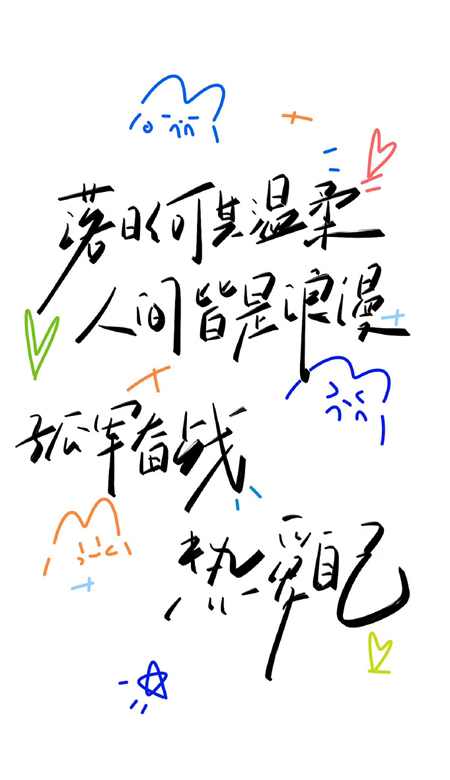 落日何其温柔
人间皆是浪漫
孤军奋战
热爱自己